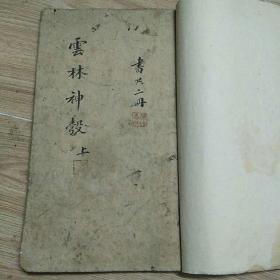 書共二冊
雲林神彀
上